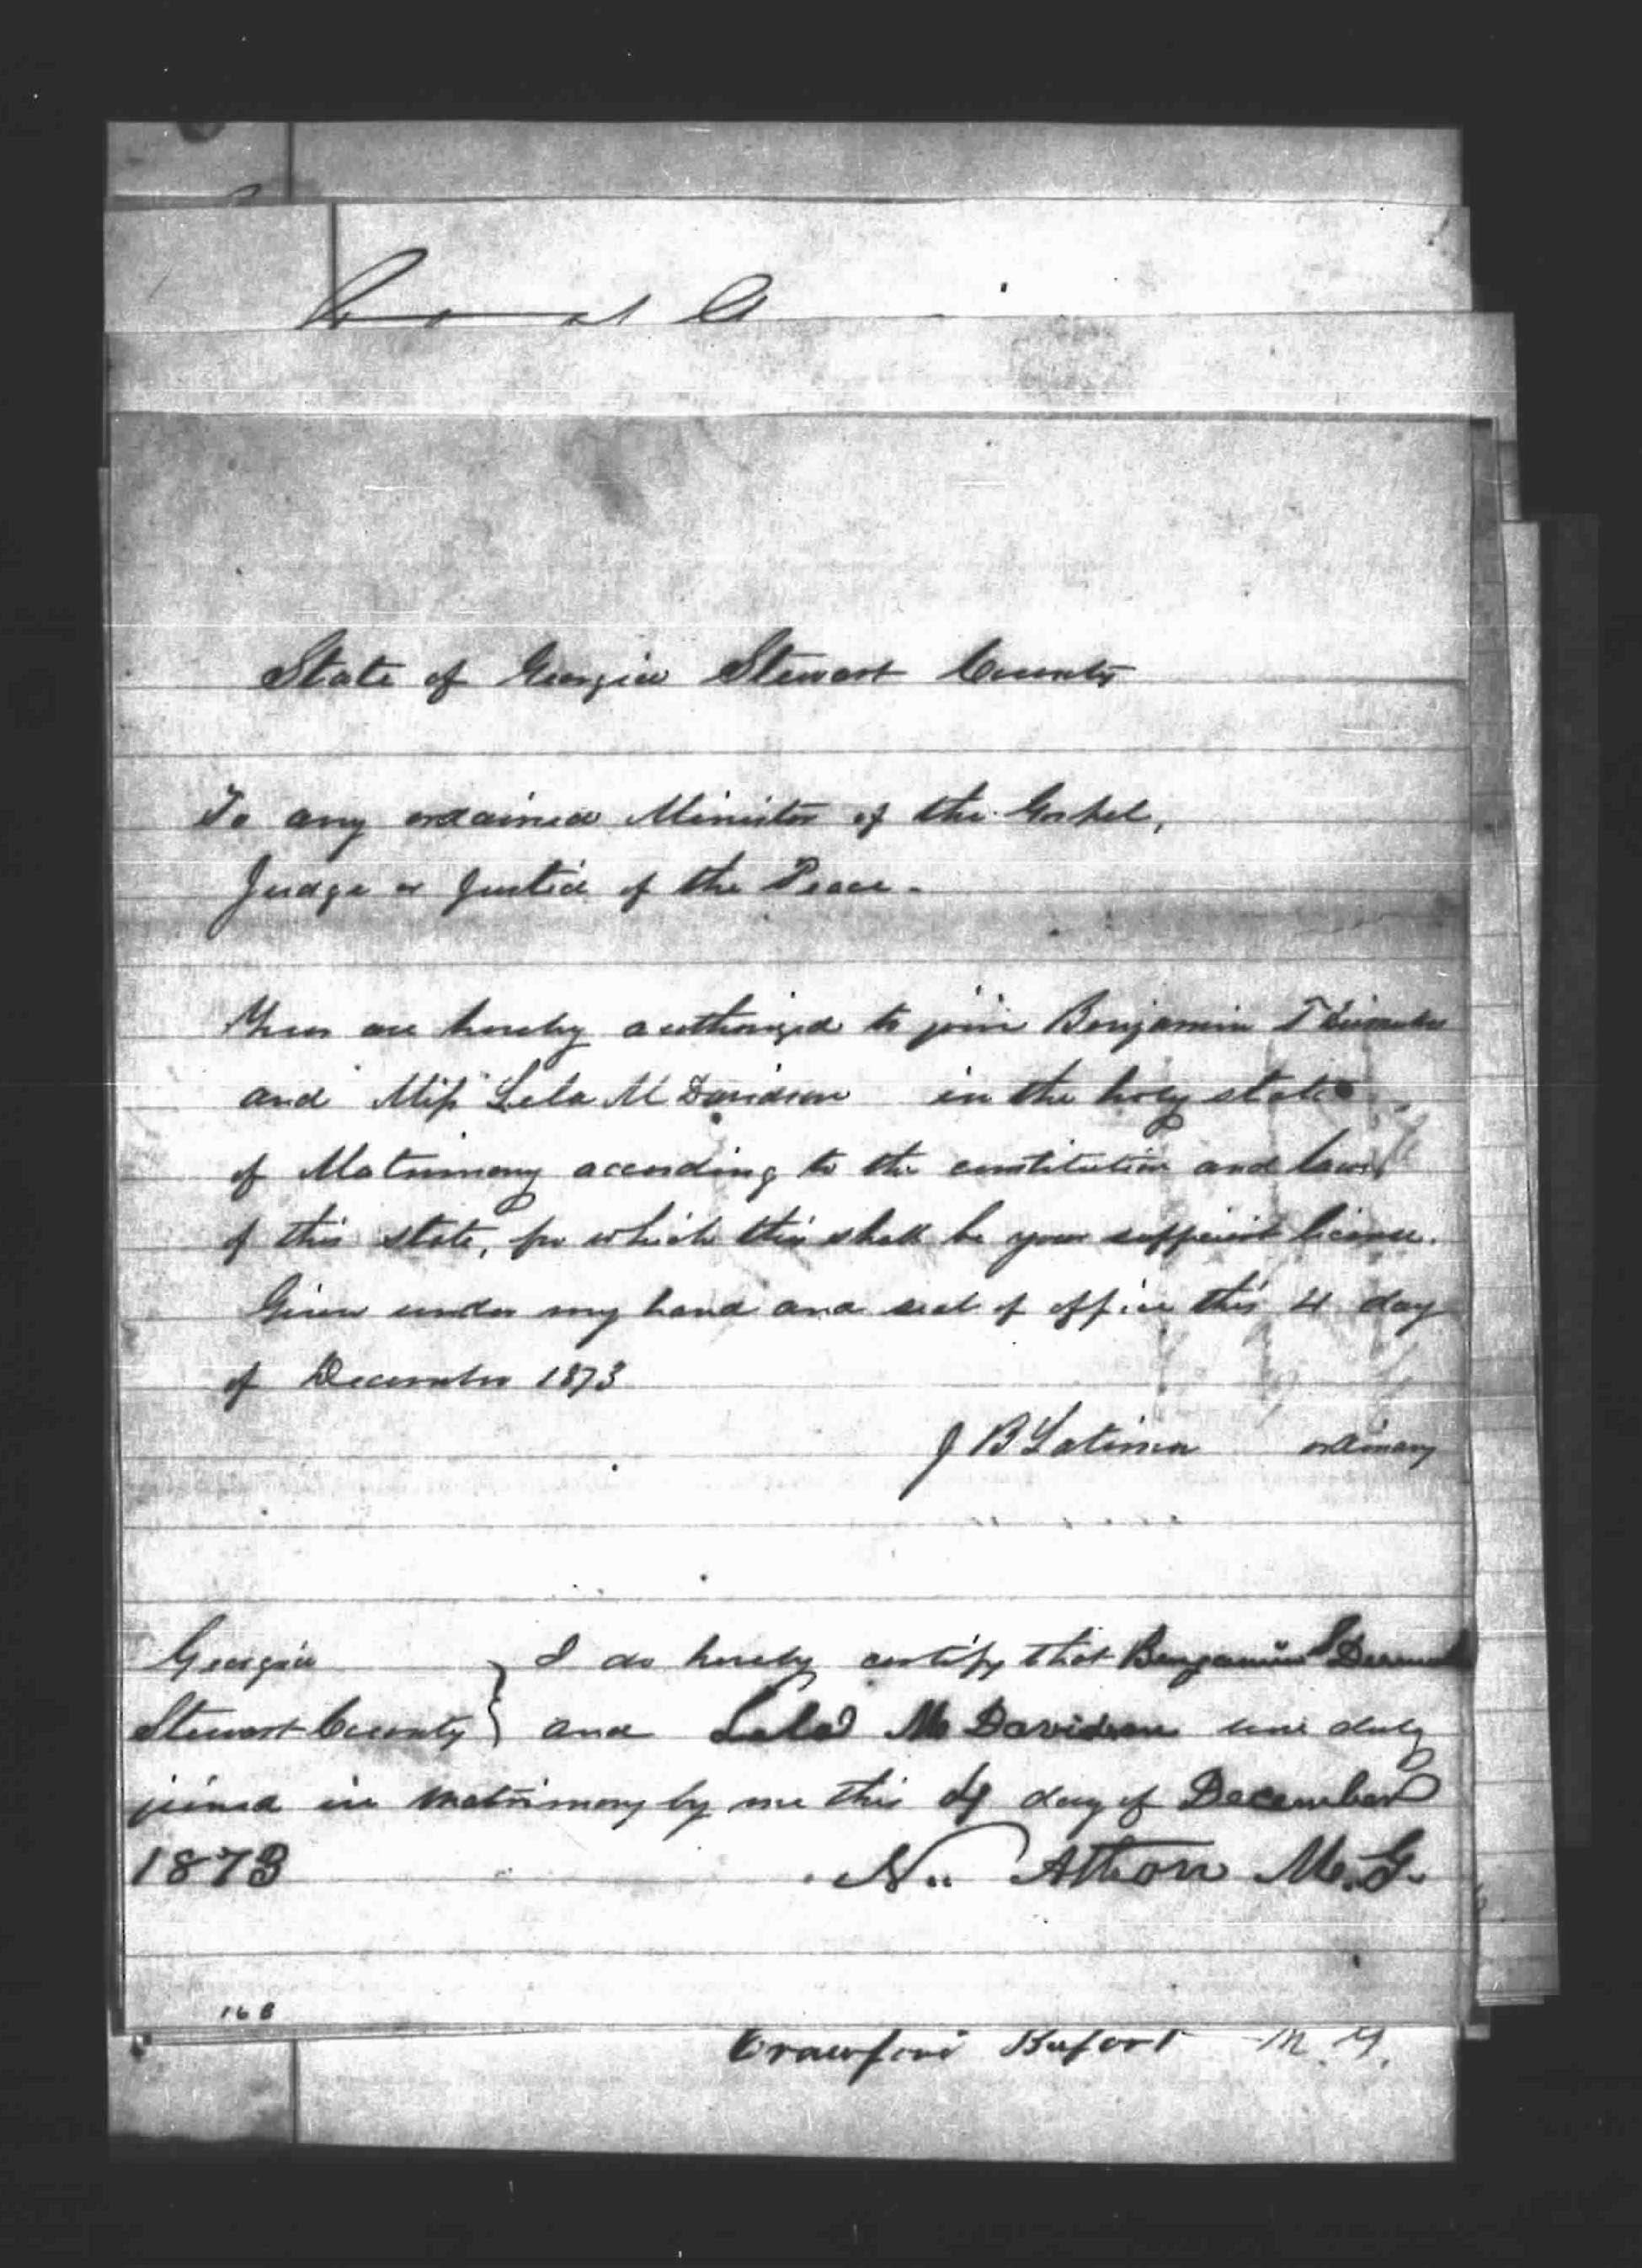 State of Georgia Stewart County
To any ordained Minister of the Gospel,
Judge or Justice of the Peace.
You are hereby authorized to join Benjamin T
and Miss Lela M Davidson in the holy state
of Matrimony according to the constitution and laws
of this state, for which this shall be your sufficient license.
Given under my hand and seal of office this 4 day
of December 1873
J B Latimer ordinary
Georgia } I do hereby certify that Benjamin
Stewart County } and Lela M Davidson were duly
joined in matrimony by me this 4 day of December
1873 N. M.G.
168
Crawford M.G.